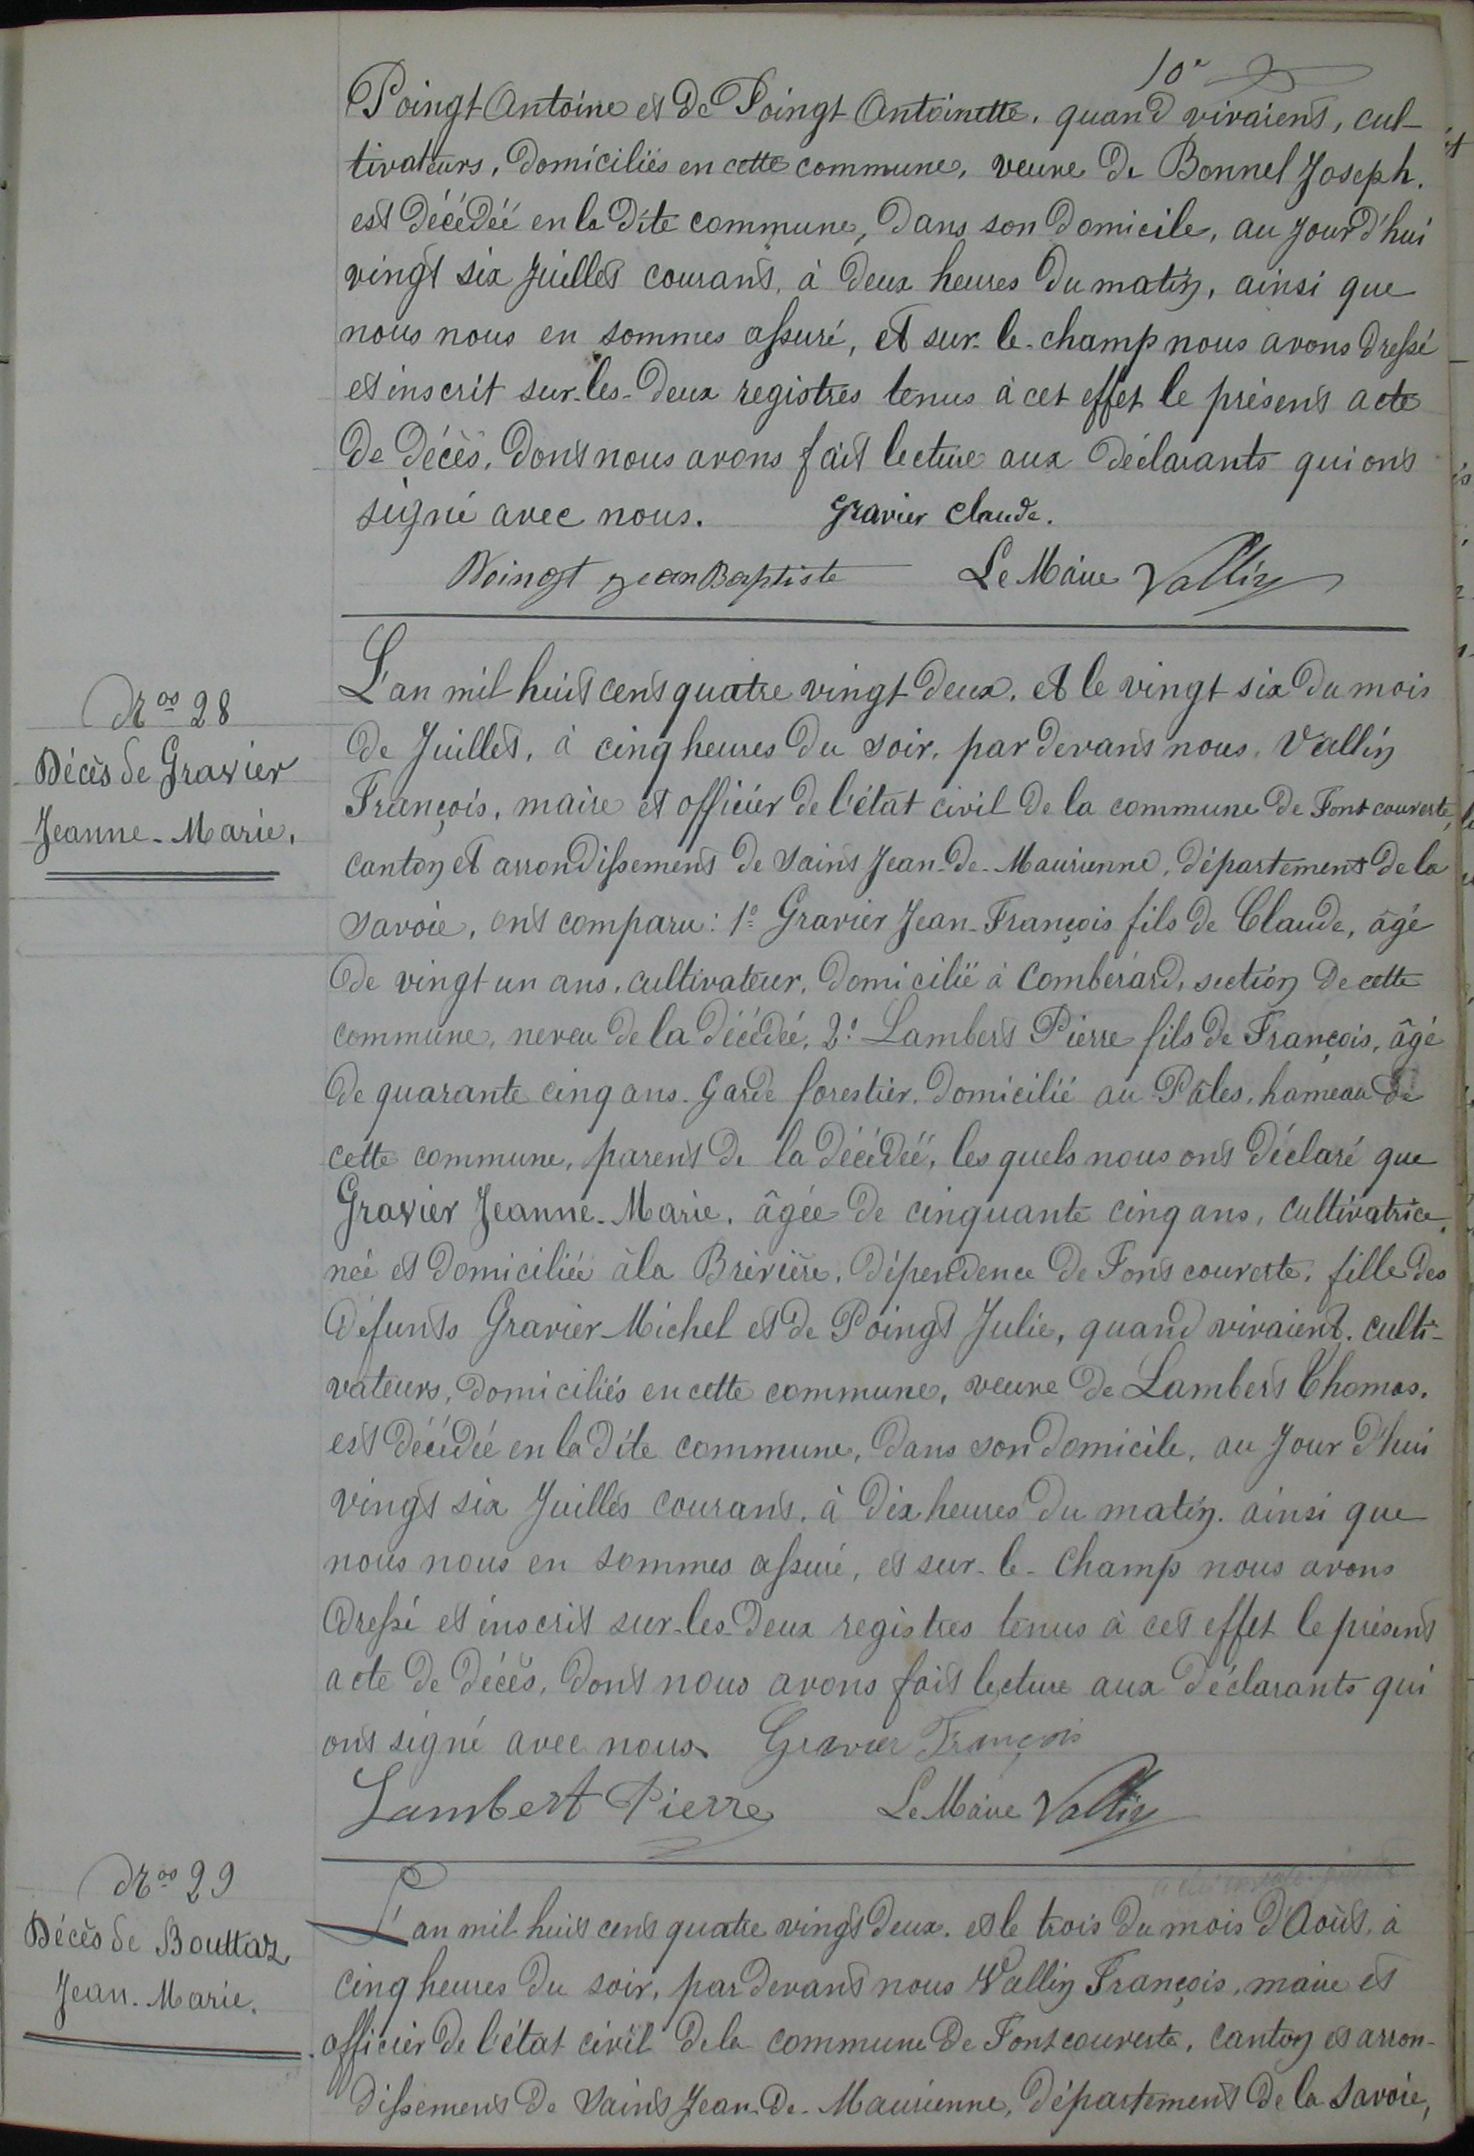 10e
Poingt Antoine et de Poingt Antoinette, quand vivaient, cul-
tivateurs, domiciliés en cette commune, veuve de Bonnel Joseph.
est décédée en la dite commune, dans son domicile, au jourd'hui
vingt six Juillet courant, à deux heures du matin, ainsi que
nous nous en sommes assuré, et sur-le-champ nous avons dressé
et inscrit sur-les-deux registres tenus à cet effet le présent acte
de décès, dont nous avons fait lecture aux déclarants qui ont
signé avec nous. Gravier Claude.
Poingt jean Baptiste Le Maire Vallin
Nos 28
Décès de Gravier
Jeanne-Marie.
L'an mil huit cent quatre vingt deux, et le vingt six du mois
de Juillet, à cinq heures du soir, par devant nous, Vallin
François, maire et officier de l'état civil de la commune de Fontcouverte,
canton et arrondissement de Saint Jean-de-Maurienne, département de la
Savoie, ont comparu: 1º Gravier Jean-François fils de Claude, âgé
de vingt un ans, cultivateur, domicilié à Combérard, section de cette
commune, neveu de la décédée, 2º Lambert Pierre fils de François, âgé
de quarante cinq ans, Garde forestier, domicilié au Pales, hameau de
cette commune, parent de la décédée, les quels nous ont déclaré que
Gravier Jeanne-Marie, âgée de cinquante cinq ans, cultivatrice,
née et domiciliée à la Brévière, dépendence de Font couverte, fille des
défunts Gravier Michel et de Poingt Julie, quand vivaient, culti-
vateurs, domiciliés en cette commune, veuve de Lambert Thomas,
est décédée en la dite commune, dans son domicile, au jour d'hui
vingt six Juillet courant, à dix heures du matin, ainsi que
nous nous en sommes assuré, et sur-le-champ nous avons
dressé et inscrit sur-les-deux registres tenus à cet effet le présent
acte de décès, dont nous avons fait lecture aux déclarants qui
ont signé avec nous. Gravier François
Lambert Pierre Le Maire Vallin
Nos 29
Décès de Bouttaz
Jean-Marie.
L'an mil huit cent quatre vingt deux, et le trois du mois d'Août, à
cinq heures du soir, par devant nous Vallin François, maire et
officier de l'état civil de la commune de Fontcouverte, canton et arron-
dissement de Saint Jean-de-Maurienne, département de la Savoie,